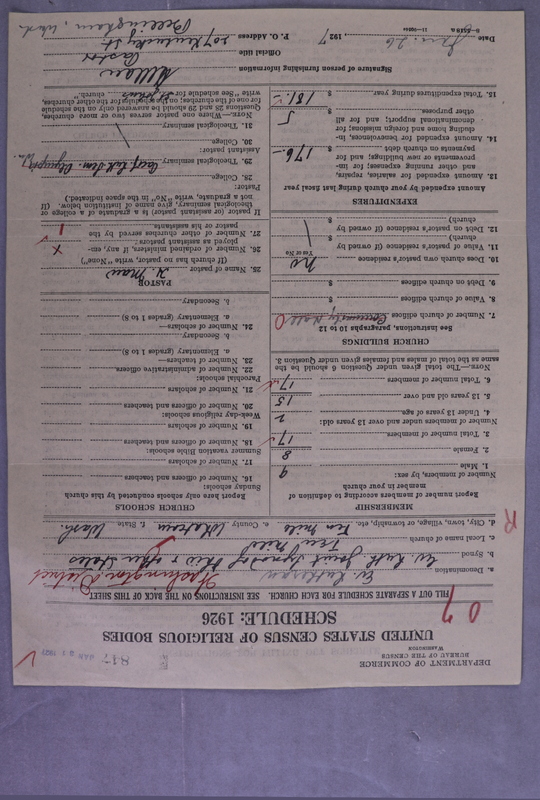 DEPARTMENT OF COMMERCE
BUREAU OF THE CENSUS
WASHINGTON
817
UNITED STATES CENSUS OF RELIGIOUS BODIES
SCHEDULE: 1926
FILL OUT A SEPARATE SCHEDULE FOR EACH CHURCH. SEE INSTRUCTIONS ON THE BACK OF THIS SHEET
a. Denomination Ev. Lutheran Washington District
b. Synod Ev. Luth Joint Synod of Ohio & other States
c. Local name of church Ten Mile
d. City, town, village, or township, etc. Ten Mile e. County Whatcom f. State Wash.
R
MEMBERSHIP
Report number of members according to definition of member in your church
Number of members, by sex:
1. Male 9
2. Female 8
3. Total number of members 17
Number of members under and over 13 years old:
4. Under 13 years of age 2
5. 13 years old and over 15
6. Total number of members 17
NOTE.—The total given under Question 6 should be the same as the total of males and females given under Question 3.
CHURCH BUILDINGS
See Instructions, paragraphs 10 to 12
7. Number of church edifices Community Hall 0
8. Value of church edifices $
9. Debt on church edifices $
10. Does church own pastor's residence no
Yes or No
11. Value of pastor's residence (if owned by church) $
12. Debt on pastor's residence (if owned by church) $
EXPENDITURES
Amount expended by your church during last fiscal year
13. Amount expended for salaries, repairs, and other running expenses; for improvements or new buildings; and for payments on church debt $ 176—
14. Amount expended for benevolences, including home and foreign missions; for denominational support; and for all other purposes $ 5
15. Total expenditures during year $ 181.—
CHURCH SCHOOLS
Report here only schools conducted by this church
Sunday schools:
16. Number of officers and teachers
17. Number of scholars
Summer vacation Bible schools:
18. Number of officers and teachers
19. Number of scholars
Week-day religious schools:
20. Number of officers and teachers
21. Number of scholars
Parochial schools:
22. Number of administrative officers
23. Number of teachers—
a. Elementary (grades 1 to 8)
b. Secondary
24. Number of scholars—
a. Elementary (grades 1 to 8)
b. Secondary
PASTOR
25. Name of pastor
(If church has no pastor, write "None")
26. Number of ordained ministers, if any, employed as assistant pastors x
27. Number of other churches served by the pastor or his assistants 1
If pastor (or assistant pastor) is a graduate of a college or theological seminary, give name of institution below. (If not a graduate, write "No," in the space indicated.)
Pastor:
28. College
29. Theological seminary
Assistant pastor:
30. College
31. Theological seminary
NOTE.—Where one pastor serves two or more churches, Questions 25 and 29 should be answered only on the schedule for one of the churches; on the schedules for the other churches, write "See schedule for St. Johns church."
Signature of person furnishing information
Official title Pastor
P. O. Address 207 Kentucky St.
Bellingham, Wash.
Date Jan. 26, 1927